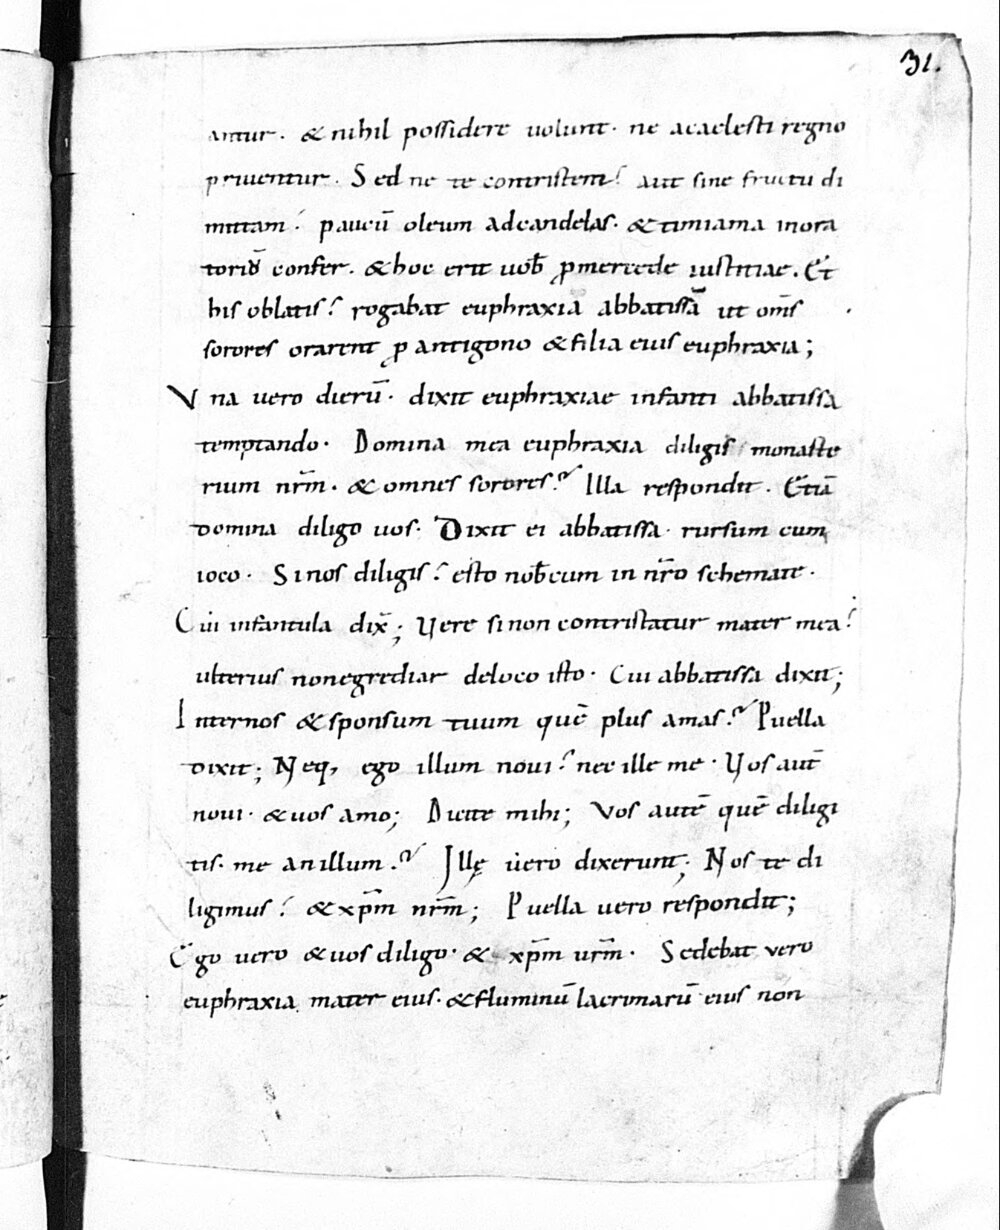 31.
antur. & nihil possidere uolunt. ne acaelesti regno
priuentur. Sed ne te contristem? aut sine fructu di
mittam? paucū oleum adcandelas. & timiama inora
torio confer. & hoc erit uob̄ ꝓmercede iustitiae. Et
his oblatis? rogabat euphraxia abbatissā ut om̄s
sorores orarent ꝓ antigono & filia eius euphraxia;
Vna uero dierū. dixit euphraxiae infanti abbatissa
temptando. Domina mea euphraxia diligis monaste
rium nr̄m. & omnes sorores? Illa respondit. Etiā
domina diligo uos. Dixit ei abbatissa. rursum cum
ioco. Sinos diligis? esto nob̄cum in nr̄o schemate.
Cui infantula dix̄; Vere sinon contristatur mater mea?
ulterius nonegrediar deloco isto. Cui abbatissa dixit;
Internos & sponsum tuum quē plus amas? Puella
dixit; Neq, ego illum noui? nec ille me. Vos aut̄
noui. & uos amo; Dicite mihi; Vos autē quē diligi
tis. me anillum? Illę uero dixerunt; Nos te di
ligimus? & xp̄m nr̄m; Puella uero respondit;
Ego uero & uos diligo. & xp̄m ur̄m. Sedebat vero
euphraxia mater eius. & fluminū lacrimarū eius non